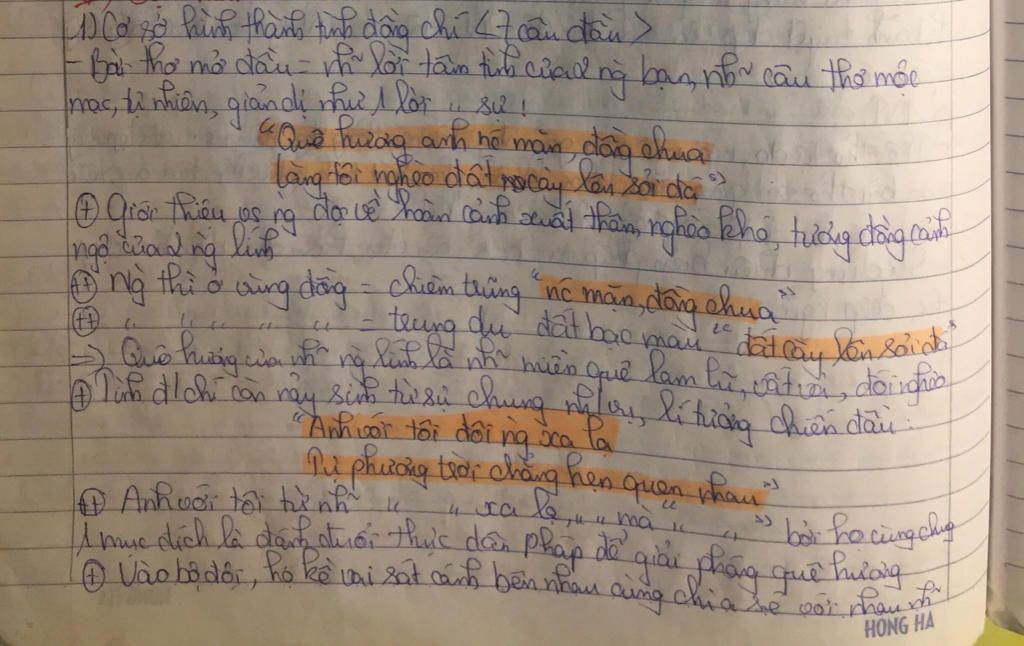 1) Cơ sở hình thành tình đồng chí < 7 câu đầu >
- Bài thơ mở đầu = nh~ lời tâm tình của 2 ng bạn, nh~ câu thơ mộc
mạc, tự nhiên, giản dị như 1 lời " sự !
"Quê hương anh nc mặn, đồng chua
Làng tôi nghèo đất cày lên sỏi đá"
⊕ Giới thiệu vs ng đọc về hoàn cảnh xuất thân, nghèo khó, tương đồng cảnh
ngộ của 2 ng lính
⊕ Ng thì ở vùng đồng = chiêm trũng "nc mặn, đồng chua"
⊕ " " " " " = trung du đất bạc màu "đất cày lên sỏi đá"
=> Quê hương của nh~ ng lính là nh~ miền quê lam lũ, vất vả, đói nghèo
⊕ Tình đ/chí còn nảy sinh từ sự chung nh/vụ, lí tưởng chiến đấu :
"Anh với tôi đôi ng xa lạ
Tự phương trời chẳng hẹn quen nhau"
⊕ Anh với tôi từ nh~ " " xa lạ, " " mà " " " bởi họ cùng chug
1 mục đích là đánh đuổi thực dân Pháp để giải phóng quê hương
⊕ Vào bộ đội, họ kề vai sát cánh bên nhau cùng chia sẻ với nhau nh~
HONG HA